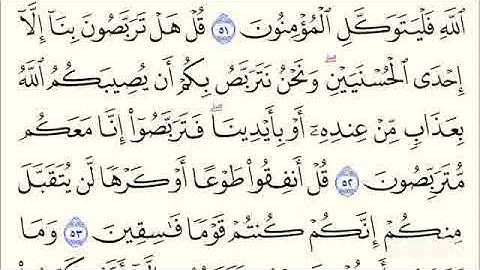 ٱللَّهِ فَلْيَتَوَكَّلِ ٱلْمُؤْمِنُونَ ۝٥١ قُلْ هَلْ تَرَبَّصُونَ بِنَآ إِلَّآ
إِحْدَى ٱلْحُسْنَيَيْنِ ۖ وَنَحْنُ نَتَرَبَّصُ بِكُمْ أَن يُصِيبَكُمُ ٱللَّهُ
بِعَذَابٍ مِّنْ عِندِهِۦٓ أَوْ بِأَيْدِينَا ۖ فَتَرَبَّصُوٓا۟ إِنَّا مَعَكُم
مُّتَرَبِّصُونَ ۝٥٢ قُلْ أَنفِقُوا۟ طَوْعًا أَوْ كَرْهًا لَّن يُتَقَبَّلَ
مِنكُمْ ۖ إِنَّكُمْ كُنتُمْ قَوْمًا فَٰسِقِينَ ۝٥٣ وَمَا